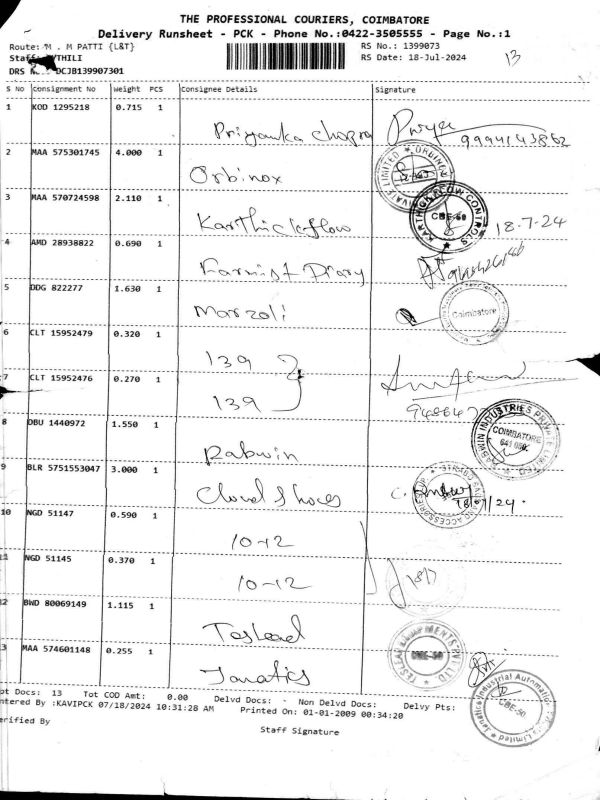 THE PROFESSIONAL COURIERS, COIMBATORE
Delivery Runsheet - PCK - Phone No.:0422-3505555 - Page No.:1
Route: M . M PATTI {L&T}
RS No.: 1399073
Staff: THILI
RS Date: 18-Jul-2024
13
DRS DCJB139907301
S No Consignment No Weight PCS Consignee Details Signature
1 KOD 1295218 0.715 1
Priyanka Chopra
2 MAA 575301745 4.000 1
Orbinox
3 MAA 570724598 2.110 1
Karthickflow
KARTHICK FLOW CONTROLS
CBE-50
18-7-24
4 AMD 28938822 0.690 1
Farmist Diary
5 DDG 822277 1.630 1
Marzoli
Coimbatore
6 CLT 15952479 0.320 1
139
7 CLT 15952476 0.270 1
139
8 DBU 1440972 1.550 1
Rabwin
RABWIN INDUSTRIES PRIVATE LIMITED
COIMBATORE
641 050.
9 BLR 5751553047 3.000 1
Cloud Shoes
10 NGD 51147 0.590 1
10-12
11 NGD 51145 0.370 1
10-12
18/7
12 BWD 80069149 1.115 1
Teslead
TESLEAD EQUIPMENTS PVT LTD
3 MAA 574601148 0.255 1
Janatics
Industrial Automation
CBE-50
ot Docs: 13 Tot COD Amt: 0.00 Delvd Docs: - Non Delvd Docs: Delvy Pts:
ntered By :KAVIPCK 07/18/2024 10:31:28 AM Printed On: 01-01-2009 00:34:20
erified By
Staff Signature